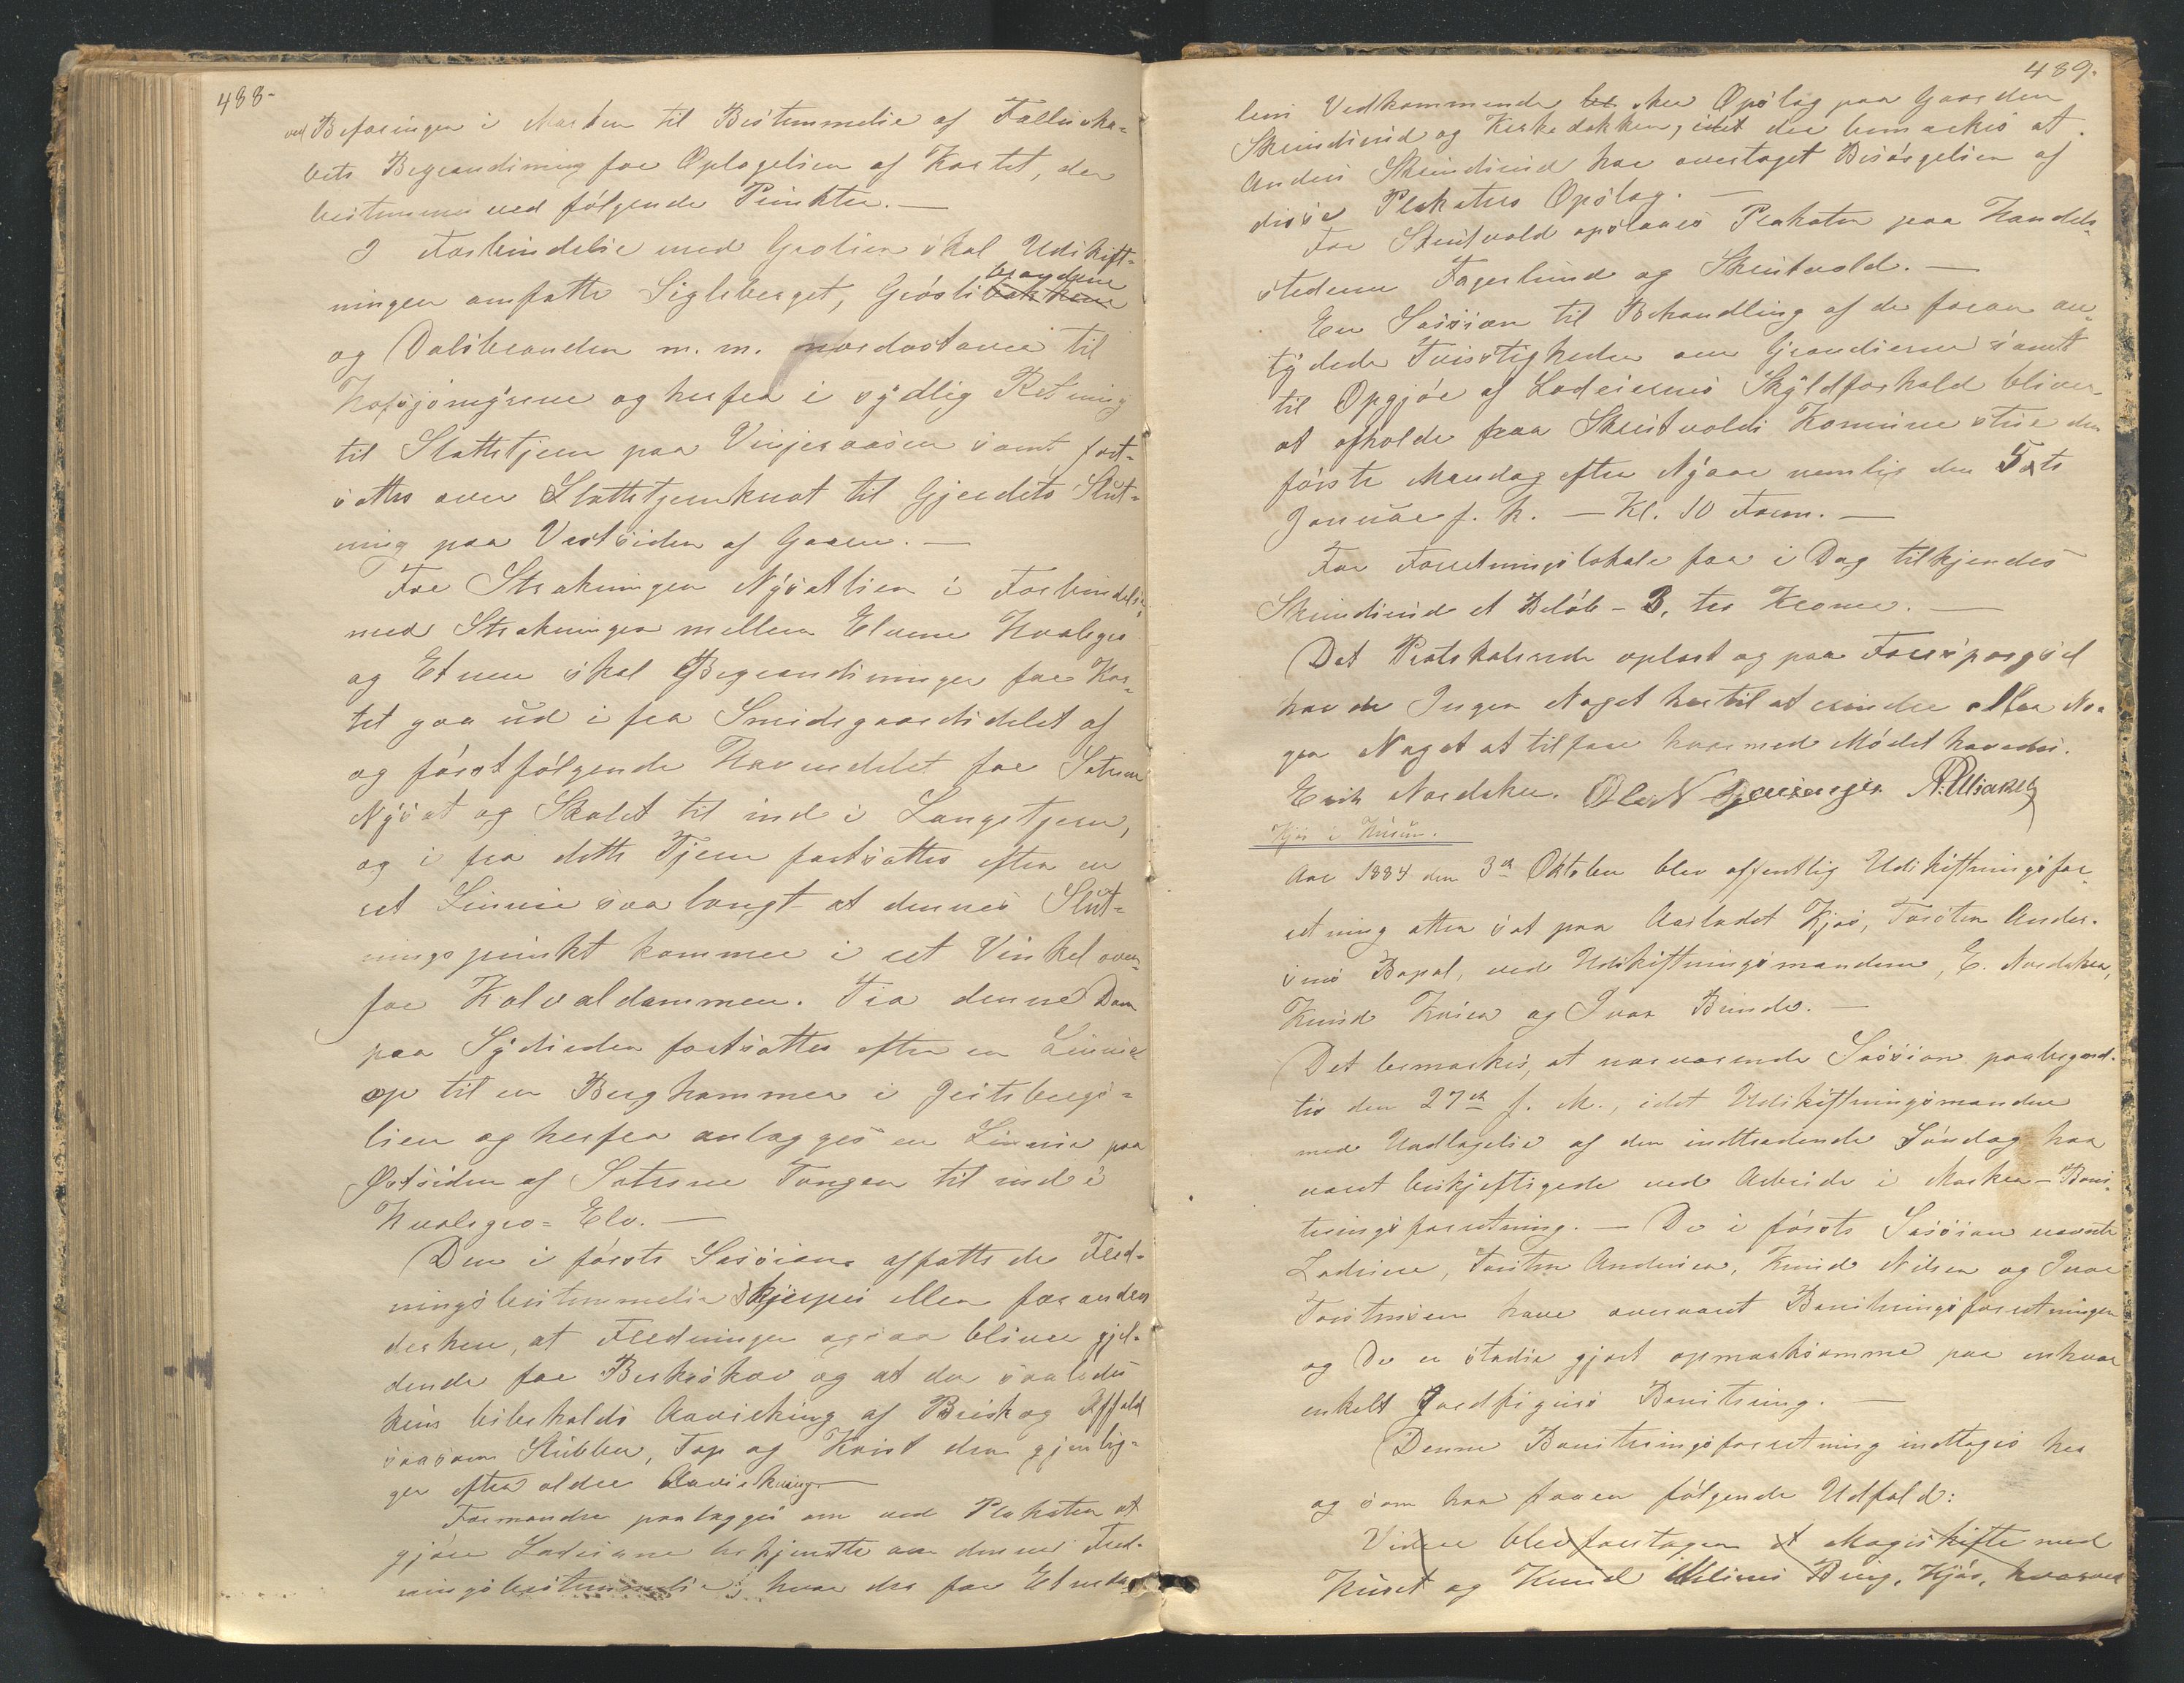 488-
ved Befaringen i Marken til Bestemmelse af Fællesska-
bets Begrændsning for Optagelsen af Kartet, der
bestemmes ved følgende Punkter. —
I Forbindelse med Grølien skal Udskift-
brændene
ningen omfatte Sigleberget, Grøslibakkene
og Dalsbrænden m. m. nordostover til
Hofsjømyrene og herfra i sydlig Retning
til Slattetjern paa Vinjeraasen samt fort-
sættes over Slattetjernknat til Gjerdets Slut-
ning paa Vestsiden af Gaarn. —
For Strækningen Nysætlien i Forbindelse
med Strækningen mellem Elvene Hvalsgro
og Etnen skal Begrændsningen for Kar-
tet gaa ud i fra Smidsgaardsdelet af
og førstfølgende Havnedelet for Sætrene
Nysæt og Skalet til ind i Langetjern,
og i fra dette Tjern fortsættes efter en
ret Linnie saa langt at dennes Slut-
ningspunkt kommer i ret Vinkel oven-
for Kalvaldammen. Fra denne Dam
paa Sydsiden fortsættes efter en Linnie
op til en Berghammer i Geitsbergs-
lien og herfra anlægges en Linnie paa
Østsiden af Sætrene Tangen til ind i
Hvalsgro-Elv. —
Den i første Session affattede Fred-
ningsbestemmelse skjerpes eller forandres
derhen, at Fredningen ogsaa bliver gjel-
dende for Birkeskov og at der saaledes
kuns bibeholdes Anvisning af Brisk og Affald
saasom Stubber, Top og Kvist den gjenlig-
ger efter ældre Anvisning —
Formændene paalægges om ved Plakater at
gjøre Lodeierne bekjendte om dennes Fred-
ningsbestemmelse; hvor der for Etneda-
489.
lens Vedkommende be sker Opslag paa Gaarden
Skrindsrud og Kirkebakken, idet der bemærkes at
Anders Skrindsrud har overtaget Besørgelsen af
disse Plakaters Opslag. —
For Skrutvold opslaaes Plakater paa Handels-
stederne Fagerlund og Skrutvold. —
En Session til Behandling af de foran an-
tydede Tvistigheder om Grændserne samt
til Opgjør af Lodeiernes Skyldforhold bliver
at afholde paa Skrutvolds Komunestue den
første Mandag efter Nyaar nemlig den 5te
Januar f. A. — Kl. 10 Form. —
For Forretningslokale for i Dag tilkjendes
Skrindsrud et Beløb - 3, tre Kroner. —
Det Protokolerede oplæst og paa Forespørgsel
havde Ingen Noget hertil at erindre eller No-
gen Noget at tilføie hvormed Mødet hævedes.
Erik Nordaker. Ole N
Kjøs i Hurum.
Aar 1884 den 3die Oktober blev offentlig Udskiftningsfor-
retning atter sat paa Aastedet Kjøs, Torsten Anders-
sens Bopæl, ved Udskiftningsmændene, E. Nordaker,
Knud Hvien og Ivar Bunde. —
Det bemærkes, at nærværende Session paabegynd-
tes den 27de f. M., idet Udskiftningsmændene
med Undtagelse af den indtrædende Søndag har
været beskjeftigede ved Arbeide i Marken - Boni-
teringsforretning. — De i første Session nævnte
Lodeiere, Torsten Andersen, Knud Nilsen og Ivar
Torstensen have overværet Boniteringsforretningen
og De er stadig gjort opmærksomme paa enhver
enkelt Jordfigurs Bonitering. —
Denne Boniteringsforretning indtages her
og som har faaen følgende Udfald:
Videre blev foretagen et Mageskifte med
Huset og Knud Nilsens Brug, Kjøs, hvorved